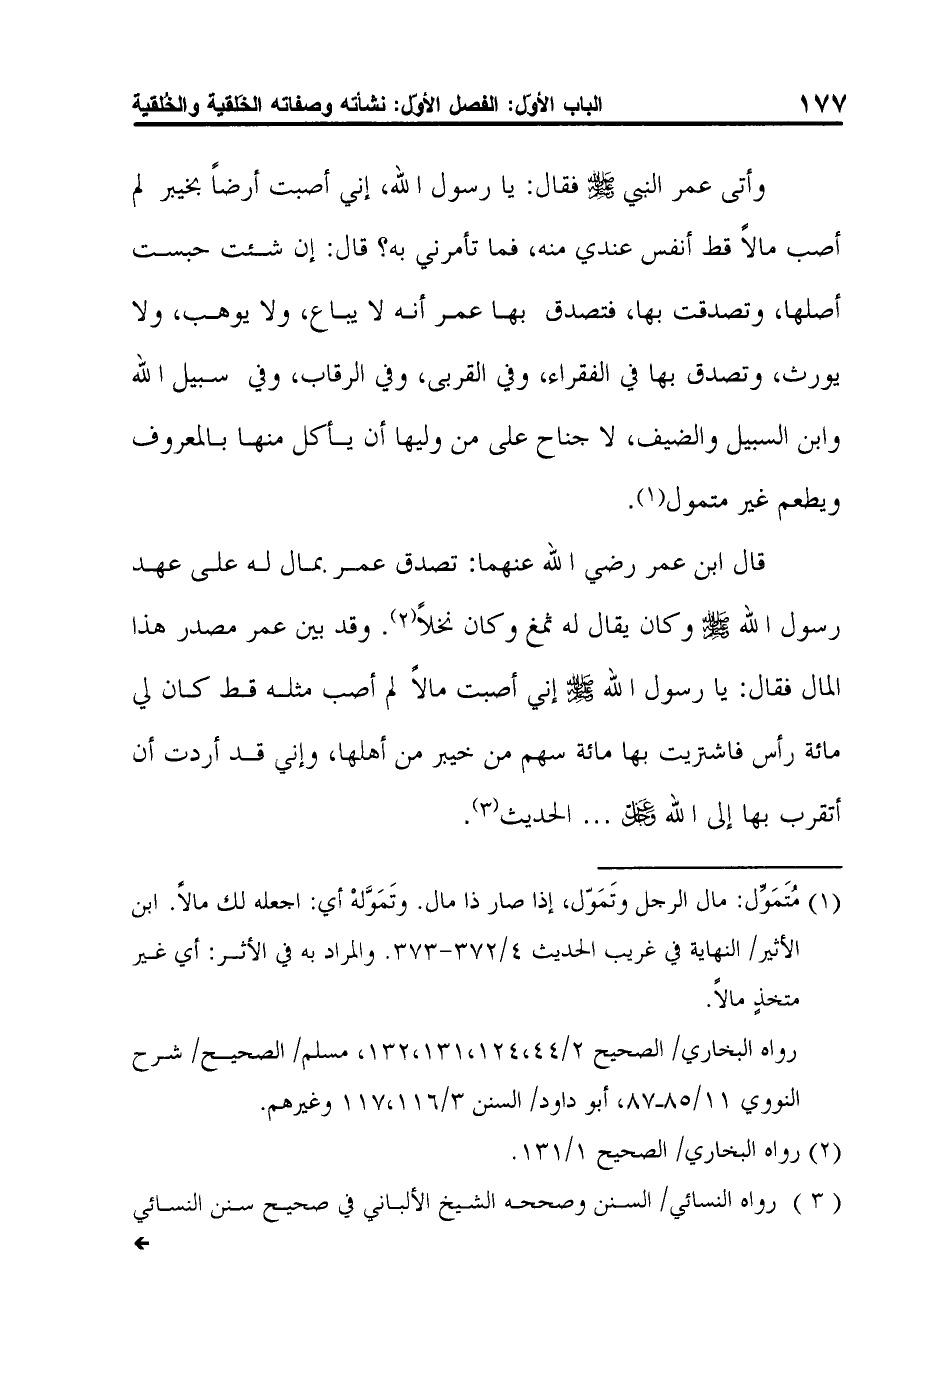 ١٧٧ الباب الأوّل: الفصل الأوّل: نشأته وصفاته الخَلقية والخُلقية
وأتى عمر النبي ﷺ فقال: يا رسول الله، إني أصبت أرضاً بخيبر لم
أصب مالاً قط أنفس عندي منه، فما تأمرني به؟ قال: إن شئت حبست
أصلها، وتصدقت بها، فتصدق بها عمر أنه لا يباع، ولا يوهب، ولا
يورث، وتصدق بها في الفقراء، وفي القربى، وفي الرقاب، وفي سبيل الله
وابن السبيل والضيف، لا جناح على من وليها أن يأكل منها بالمعروف
ويطعم غير متمول(١).
قال ابن عمر رضي الله عنهما: تصدق عمر بمال له على عهد
رسول الله ﷺ وكان يقال له ثمغ وكان نخلاً(٢). وقد بين عمر مصدر هذا
المال فقال: يا رسول الله ﷺ إني أصبت مالاً لم أصب مثله قط كان لي
مائة رأس فاشتريت بها مائة سهم من خيبر من أهلها، وإني قد أردت أن
أتقرب بها إلى الله عز وجل ... الحديث(٣).
(١) مُتَمَوِّل: مال الرجل وتَمَوّل، إذا صار ذا مال. وتَمَوَّلهْ أي: اجعله لك مالاً. ابن
الأثير/ النهاية في غريب الحديث ٣٧٢/٤-٣٧٣. والمراد به في الأثر: أي غير
متخذٍ مالاً.
رواه البخاري/ الصحيح ٤٤/٢،١٢٤،١٣١،١٣٢، مسلم/ الصحيح/ شرح
النووي ٨٥/١١-٨٧، أبو داود/ السنن ١١٦/٣،١١٧ وغيرهم.
(٢) رواه البخاري/ الصحيح ١٣١/١.
( ٣ ) رواه النسائي/ السنن وصححه الشيخ الألباني في صحيح سنن النسائي
←